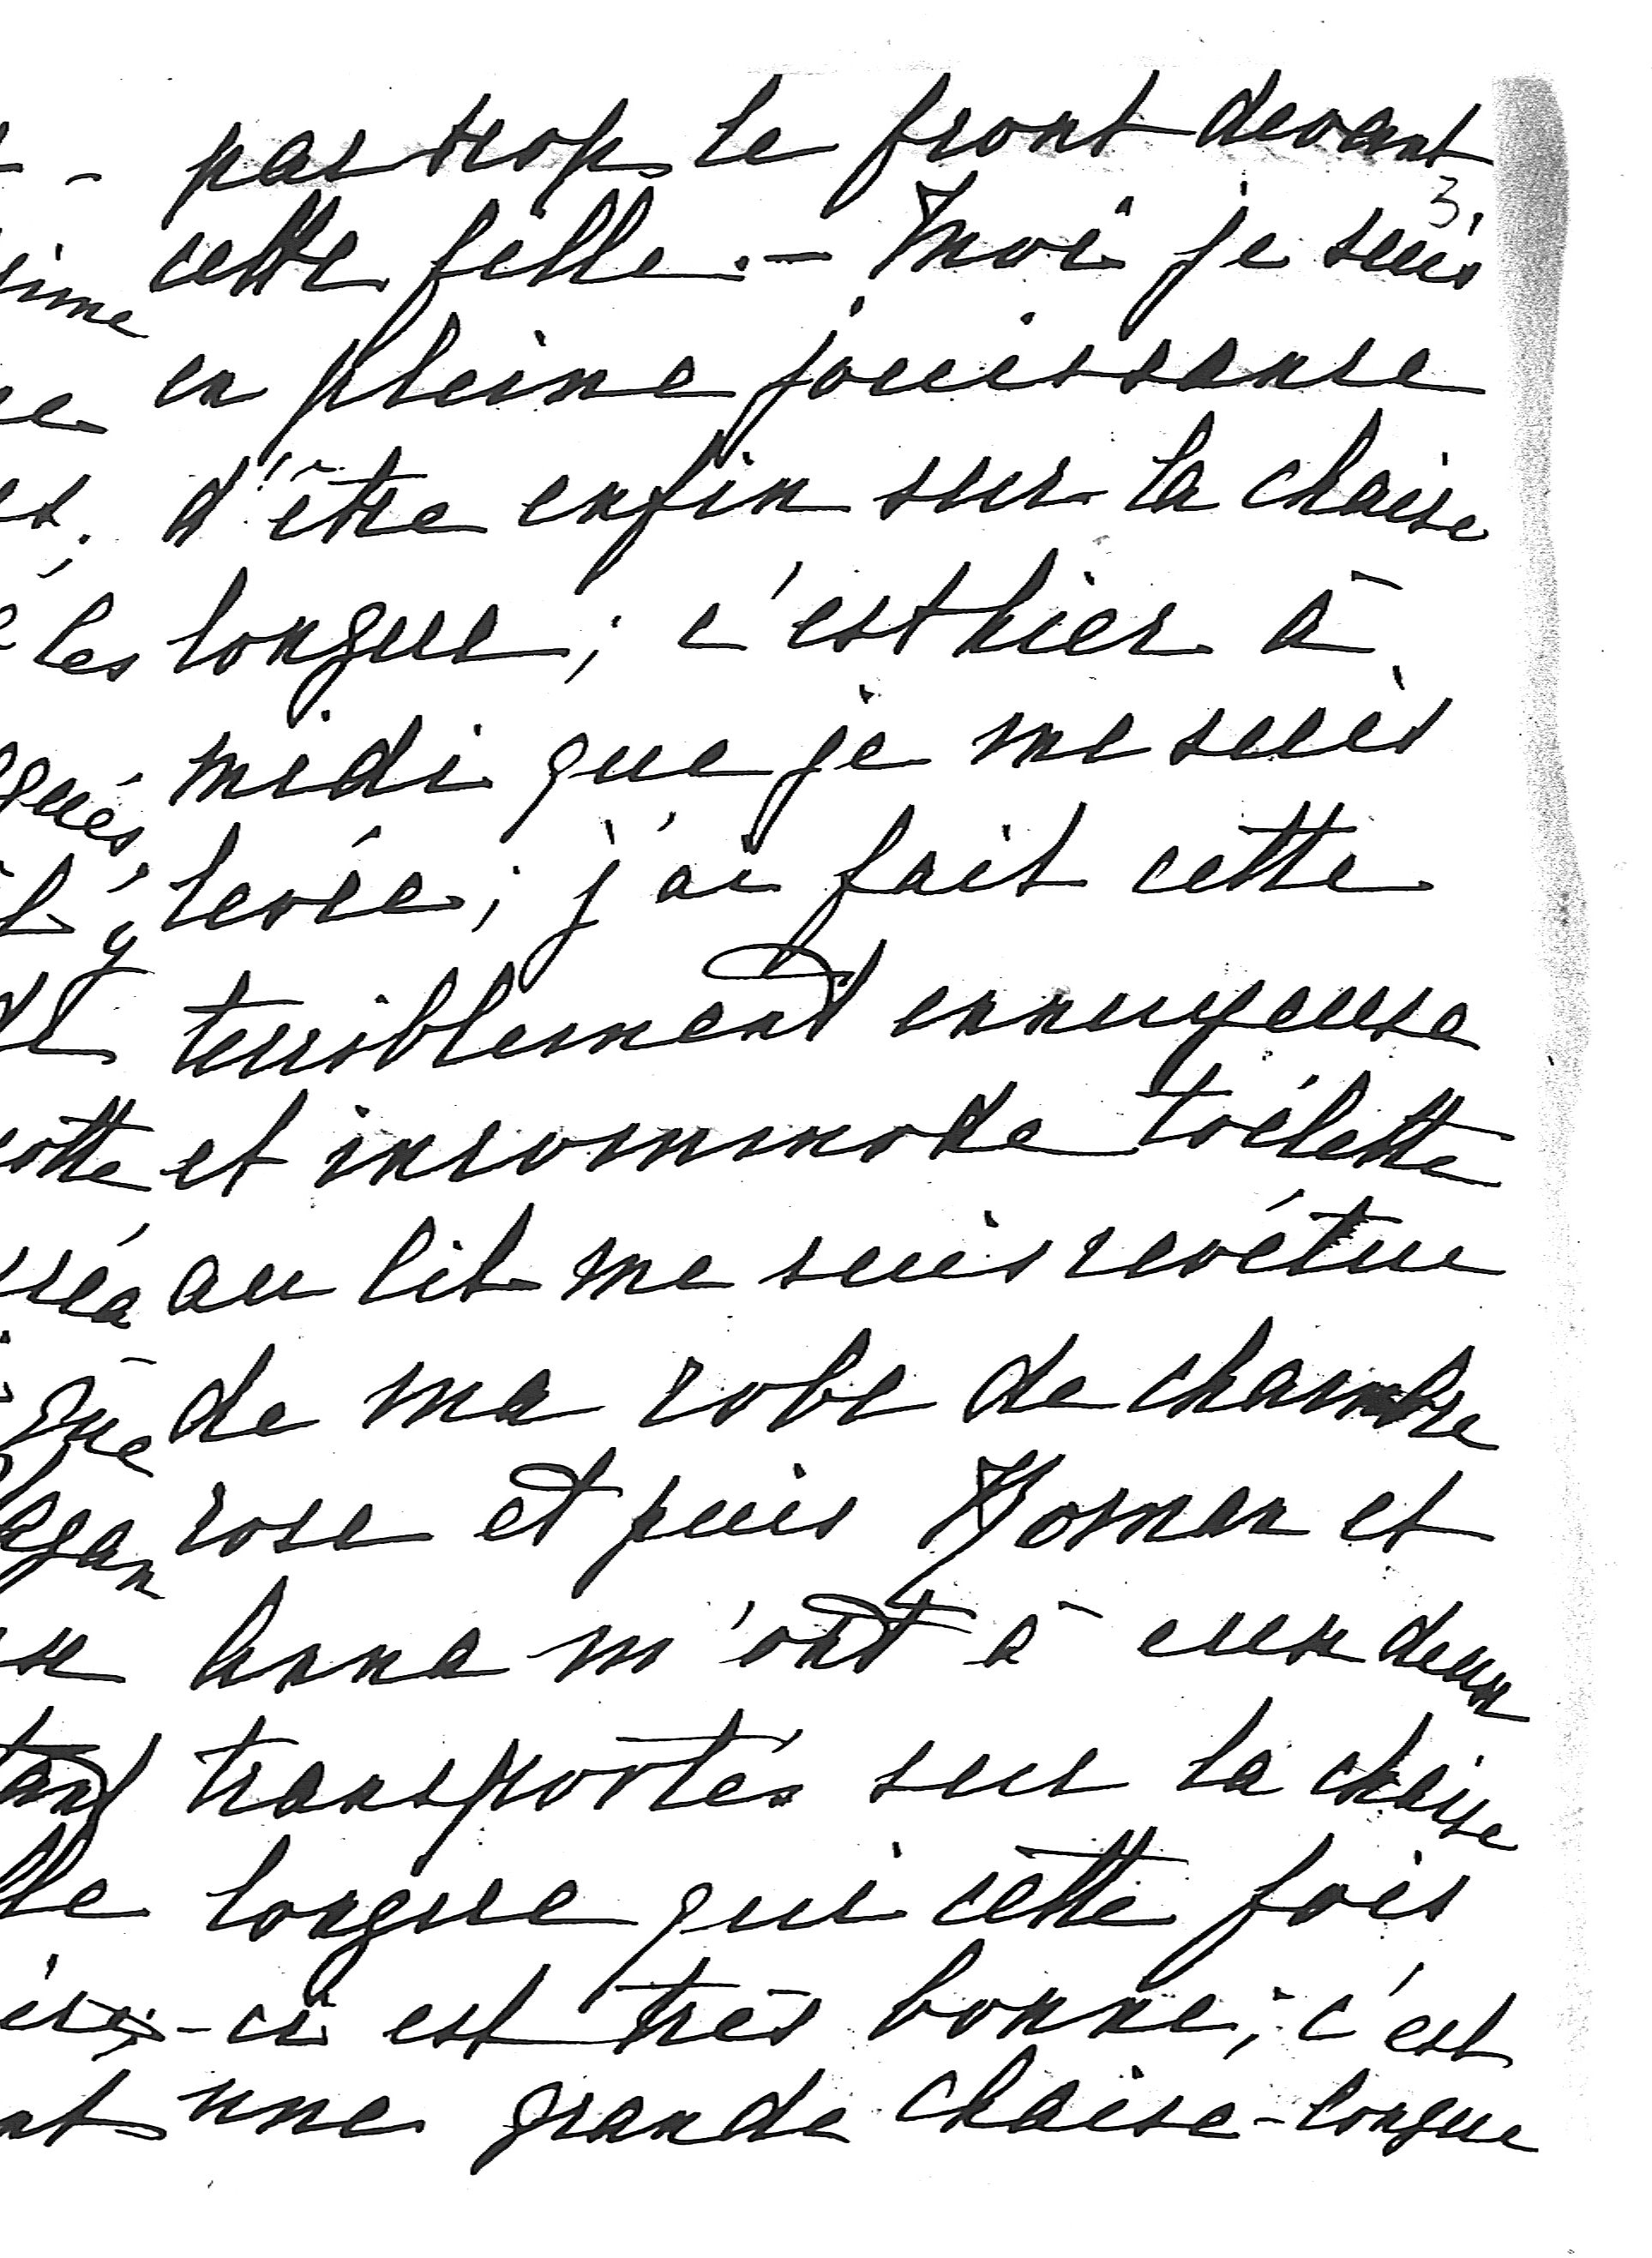 pas trop le front devant
3.
cette fille. – Moi je suis
en pleine jouissance
d'être enfin sur la chaise
longue; c'est hier à
midi que je me suis
levée; j'ai fait cette
terriblement ennuyeuse
et incommode toilette
au lit me suis revêtue
de ma robe de chambre
rose et puis et
Anna m'ont à eux deux
transportée sur la chaise
longue qui cette fois
-ci est très bonne; c'est
une grande chaise-longue